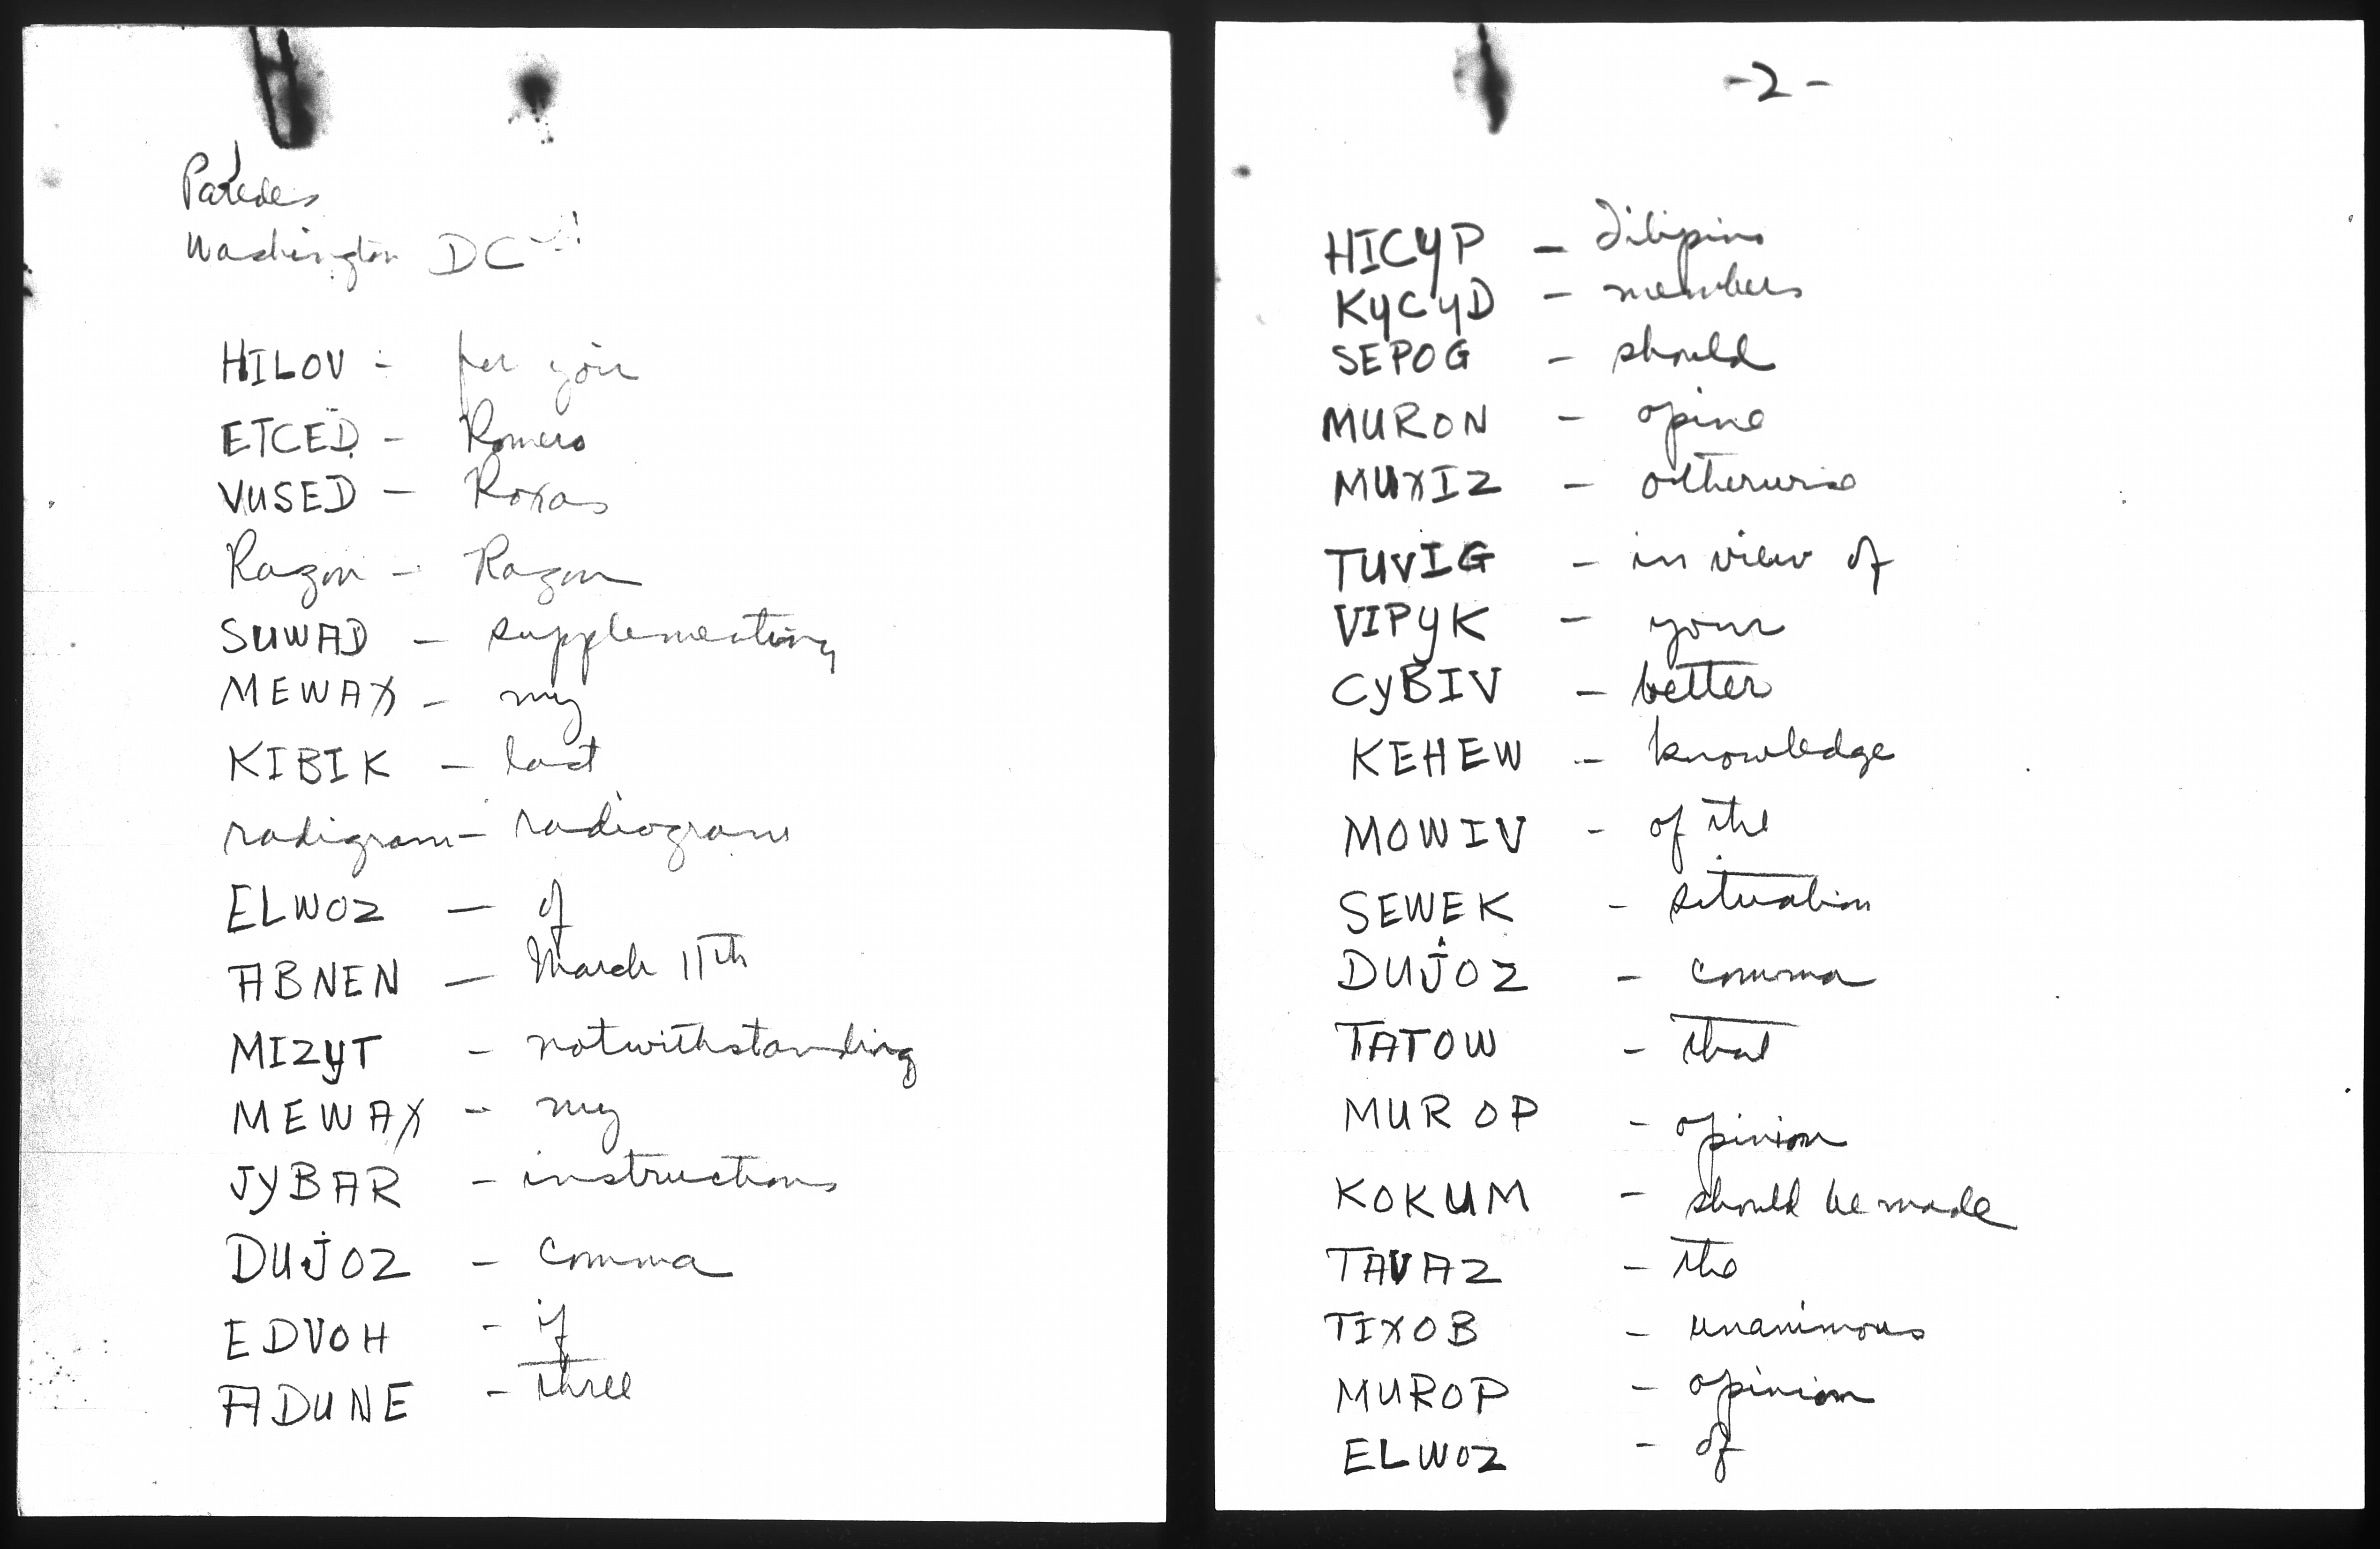 Paredes
Washington DC
HILOV - for you
ETCED - Romero
VUSED - Roxas
Razon - Razon
SUWAD - supplementing
MEWAX - my
KIBIK - last
radigram - radiogram
ELWOZ - of
ABNEN - March 11th
MIZYT - notwithstanding
MEWAX - my
JYBAR - instructions
DUJOZ - comma
EDVOH - if
ADUNE - three
-2-
HICYP - Filipino
KYCYD - members
SEPOG - should
MURON - opine
MUXIZ - otherwise
TUVIG - in view of
VIPYK - your
CYBIV - better
KEHEW - knowledge
MOWIV - of the
SEWEK - situation
DUJOZ - comma
TATOW - that
MUROP - opinion
KOKUM - should be made
TAVAZ - the
TIXOB - unanimous
MUROP - opinion
ELWOZ - of